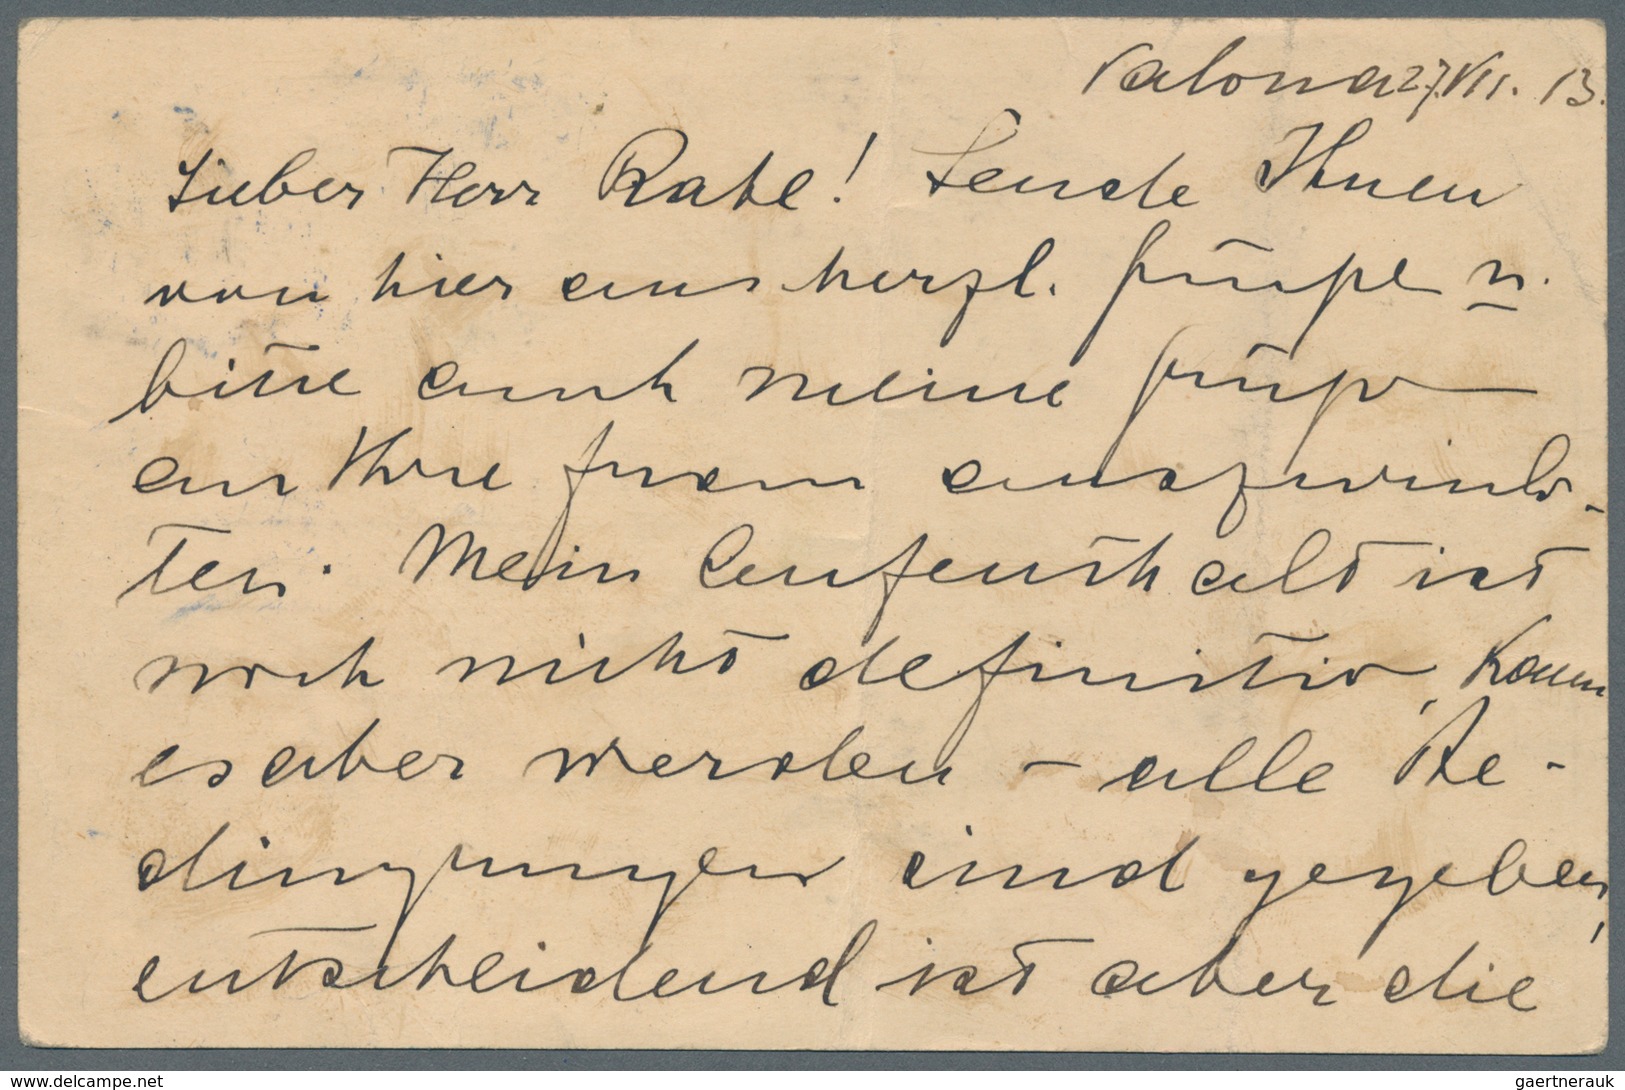 Valona 27.VII. 13.
Lieber Herr Rabe! Sende Ihnen
von hier aus herzl. Grüße u.
bitte auch meine Grüße
an Ihre Frau
ten. Mein Aufenthalt ist
noch nicht definitiv, kann
es aber werden – alle Be-
dingungen sind gegeben,
entscheidend ist aber die
www.delcampe.net
gaertnerauk